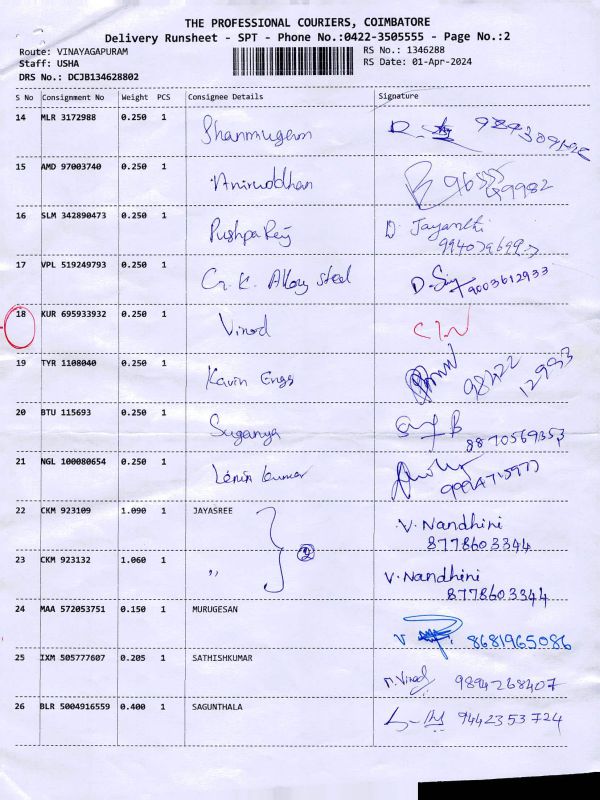 THE PROFESSIONAL COURIERS, COIMBATORE
Delivery Runsheet - SPT - Phone No.:0422-3505555 - Page No.:2
Route: VINAYAGAPURAM RS No.: 1346288
Staff: USHA RS Date: 01-Apr-2024
DRS No.: DCJB134628802
S No Consignment No Weight PCS Consignee Details Signature
14 MLR 3172988 0.250 1 Shanmugam
15 AMD 97003740 0.250 1 Aniruddhan
16 SLM 342890473 0.250 1 Pushpa Rej D. Jayanthi
17 VPL 519249793 0.250 1 G.K. Alloy steel 9003612933
18 KUR 695933932 0.250 1 Vinod
19 TYR 1108040 0.250 1 Kavin Engg 98422 12993
20 BTU 115693 0.250 1 Suganya
8870569353
21 NGL 100080654 0.250 1 Lenin kumar
22 CKM 923109 1.090 1 JAYASREE V. Nandhini
2 8778603344
23 CKM 923132 1.060 1 ,, V. Nandhini
8778603344
24 MAA 572053751 0.150 1 MURUGESAN
8681965086
25 IXM 505777607 0.205 1 SATHISHKUMAR
n. Vinod 9894268407
26 BLR 5004916559 0.400 1 SAGUNTHALA 9442353724